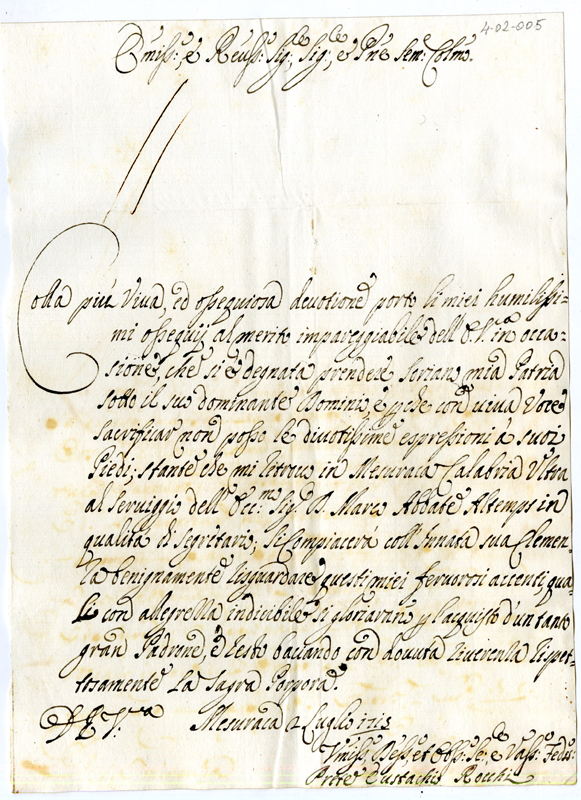 4-02-005
Emiss:º, e Reuss:º Sig:, Sig:, e Pne Sem: Colmo.
Colla più Viva, ed ossequiosa devotione porto li miei humilissi=
mi ossequij al merito impareggiabile dell'E.V. in occa=
sione, che si è degnata prendere Soriano mia Patria
sotto il suo dominante Dominio, e già che con viva Voce
sacrificar non posso le divotissime espressioni a' suoi
Piedi; stante che mi ritrovo in Mesuraca Calabria Ultra
al servigio dell'Ecc:mo Sig: D. Marco Abbate Altemps in
qualità di Segritario; Si Compiacerà coll'Innata sua Clemen=
za benignamente risguardare questi miei fervorosi accenti, qua=
li con allegrezza indicibile si gloriarano p l'acquisto d'un tanto
gran Padrone, e resto baciando con dovuta riverenza rispet=
tosamente La Sagra Porpora.
D E V:ra Mesuraca 2 Luglio 1715
Umiliss: Devss: et Obb: Se:re e Vass:o Fedss:
Prete Eustachio Rocchi